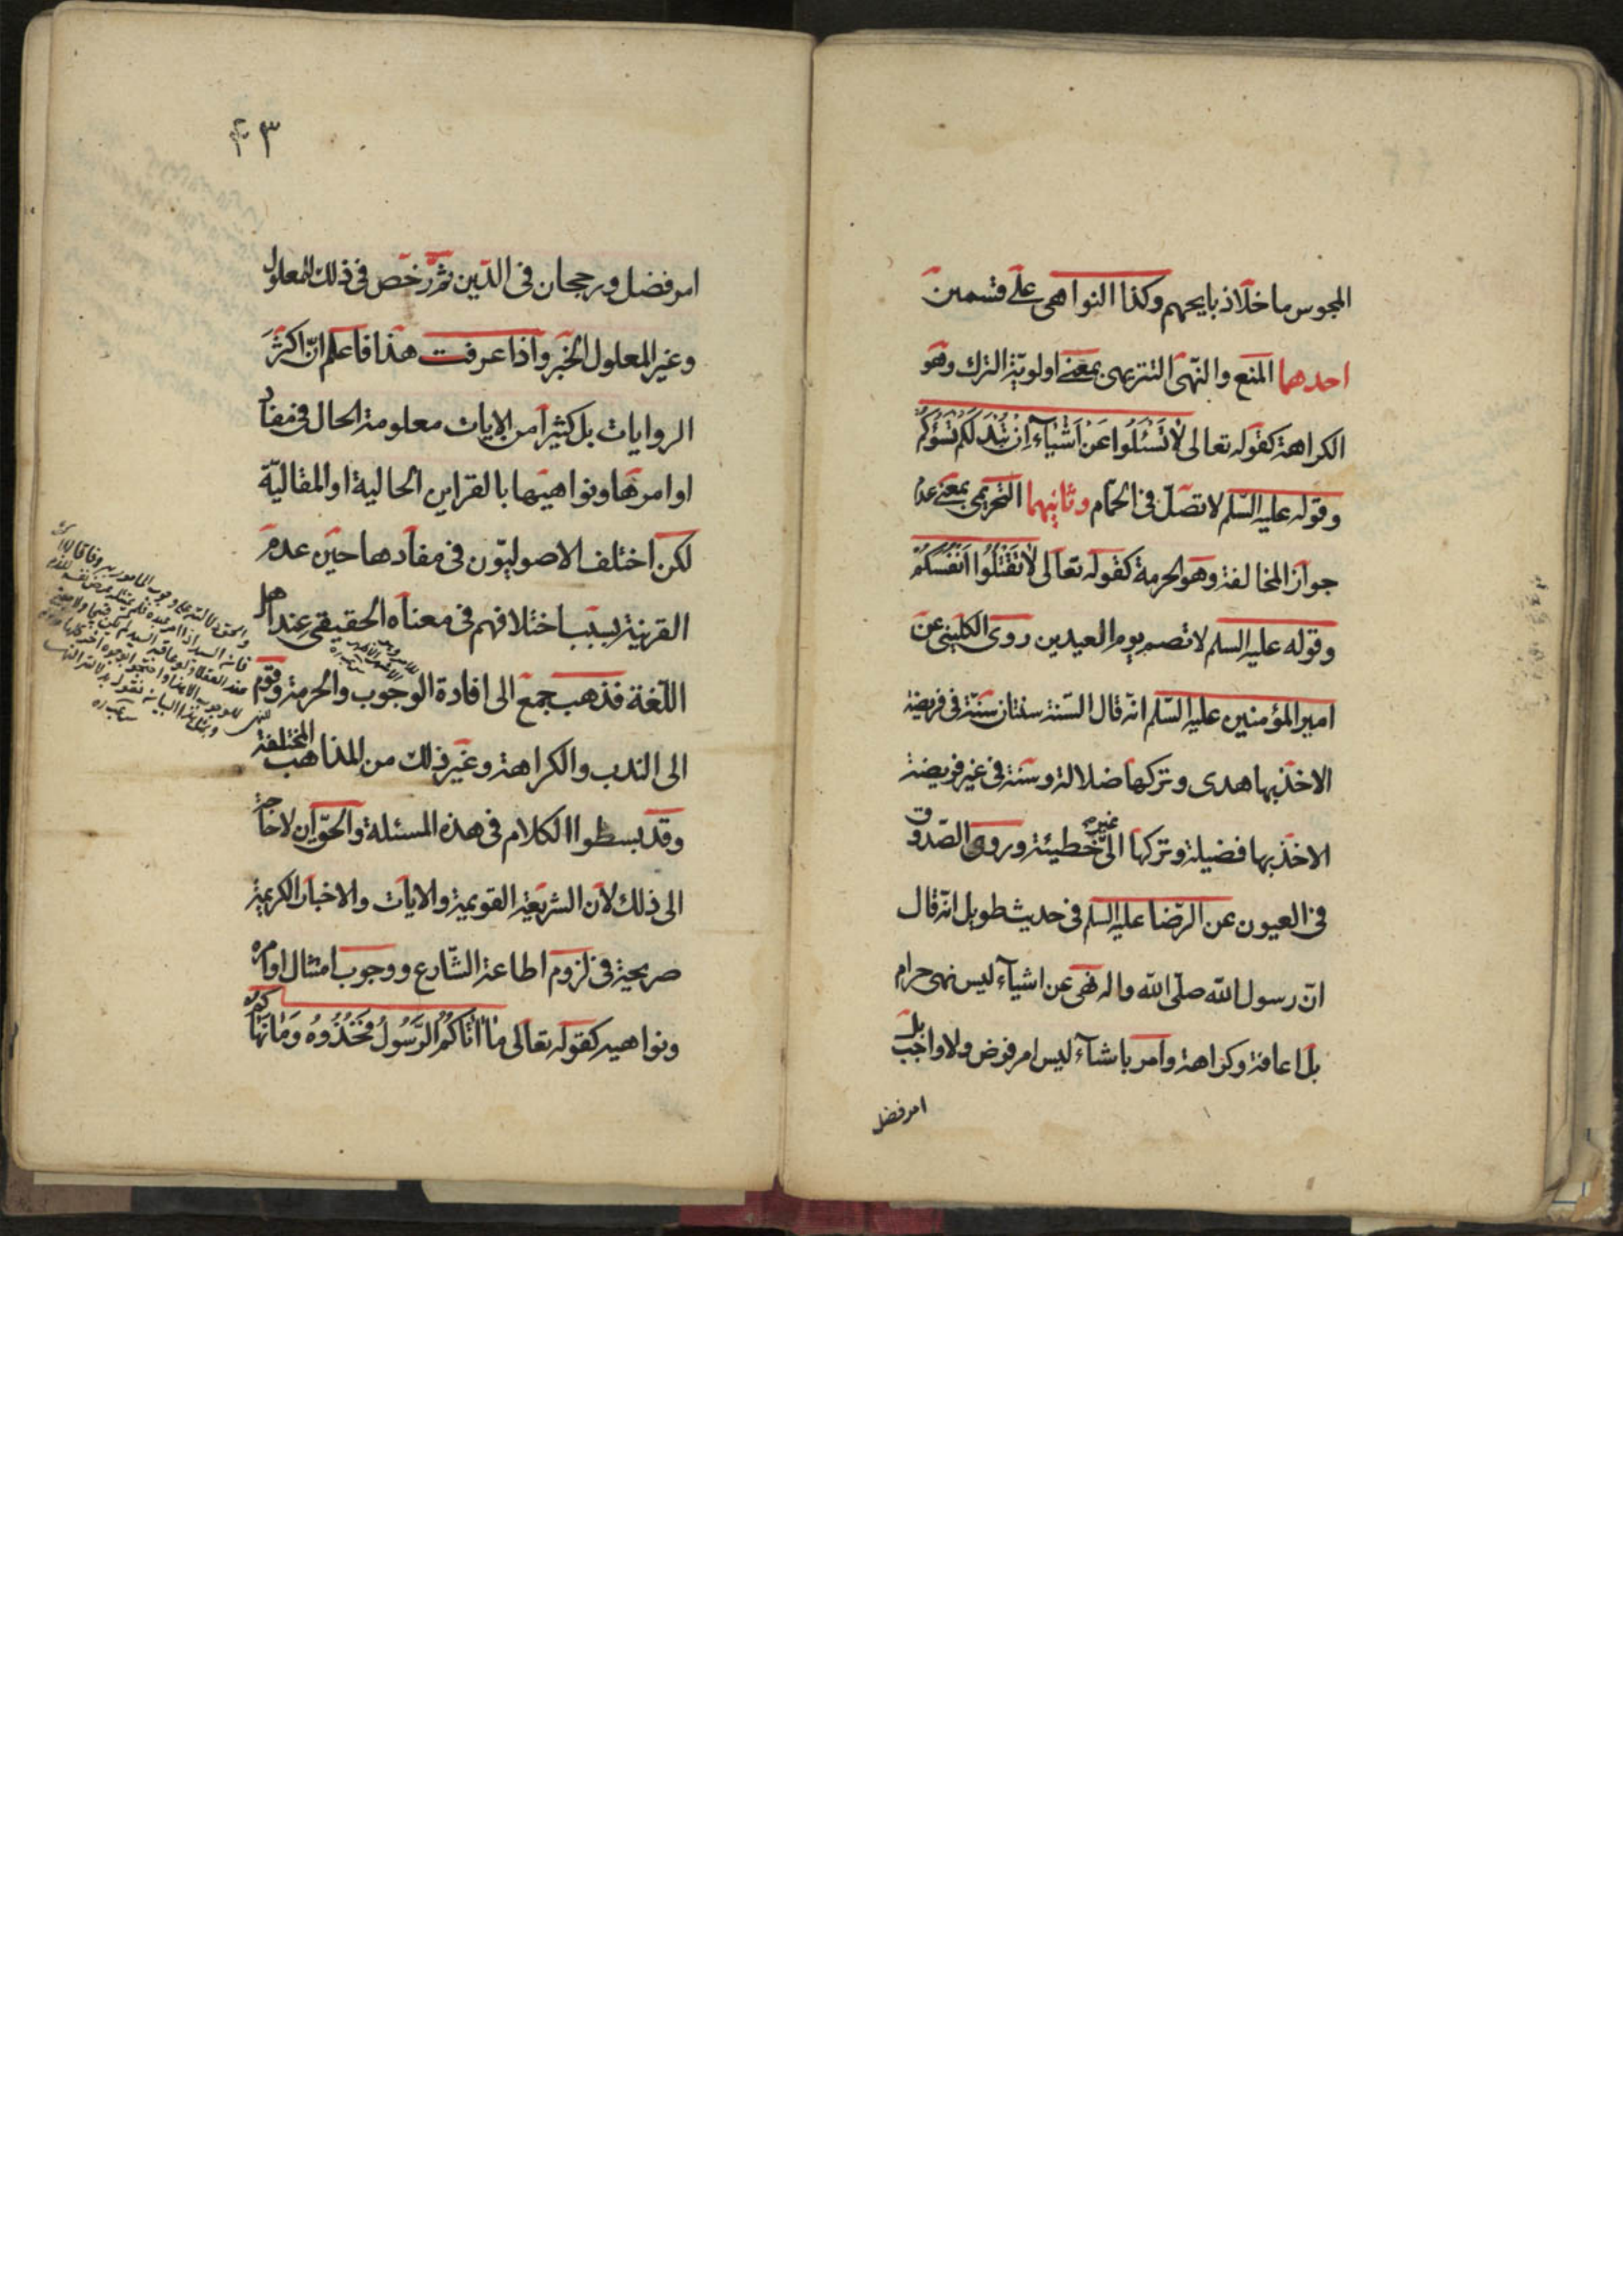 المجوس ما خلا ذبايحهم وكذا النواهى على قسمين
احدهما المنع والنهى التنزيهى بمعنى اولوية الترك وهو
الكراهة كقوله تعالى لَا تَسْئَلُوا عَنْ اَشْيَآءَ اِنْ تُبْدَ لَكُمْ تَسُؤْكُمْ
وقوله عليه السّلم لا تصلّ فى الحمّام وثانيهما التحريمى بمعنى عدم
جواز المخالفة وهو الحرمة كقوله تعالى لَا تَقْتُلُوا اَنْفُسَكُمْ
وقوله عليه السلم لا تصم يوم العيدين روى الكلينى عن
امير المؤمنين عليه السّلم انه قال السّنة سنتان سنّة فى فريضة
الاخذ بها هدى وتركها ضلالة وسنة فى غير فريضة
الاخذ بها فضيلة وتركها الى غير خطيئة وروى الصّدوق
فى العيون عن الرّضا عليه السلم فى حديث طويل انه قال
انّ رسول الله صلّى الله واله نهى عن اشيآء ليس نهى حرام
بل اعافة وكراهة وامر باشيآء ليس امر فرض ولا واجب بل
امر فضل
٤٣
امر فضل ورجحان فى الدّين ثمّ رخّص فى ذلك للمعلول
وغير المعلول الخبر واذا عرفت هذا فاعلم انّ اكثر
الروايات بل كثيرا من الايات معلومة الحال فى مفاد
اوامرها ونواهيها بالقراين الحالية او المقاليّة
لكن اختلف الاصوليّون فى مفادها حين عدم
القرينة بسبب اختلافهم فى معناه الحقيقى عند اهل
اللّغة فذهب جمع الى افادة الوجوب والحرمة وقوم
الى الندب والكراهة وغير ذلك من المذاهب المختلفة
وقد بسطوا الكلام فى هذه المسئلة والحقّ ان لا حاجة
الى ذلك لانّ الشريعة القويمة والايات والاخبار الكريمة
صريحة فى لزوم اطاعة الشّارع ووجوب امتثال اوامره
ونواهيه كقوله تعالى مَا اَتَاكُمُ الرَّسُولُ فَخُذُوهُ وَمَا نَهَاكُمْ